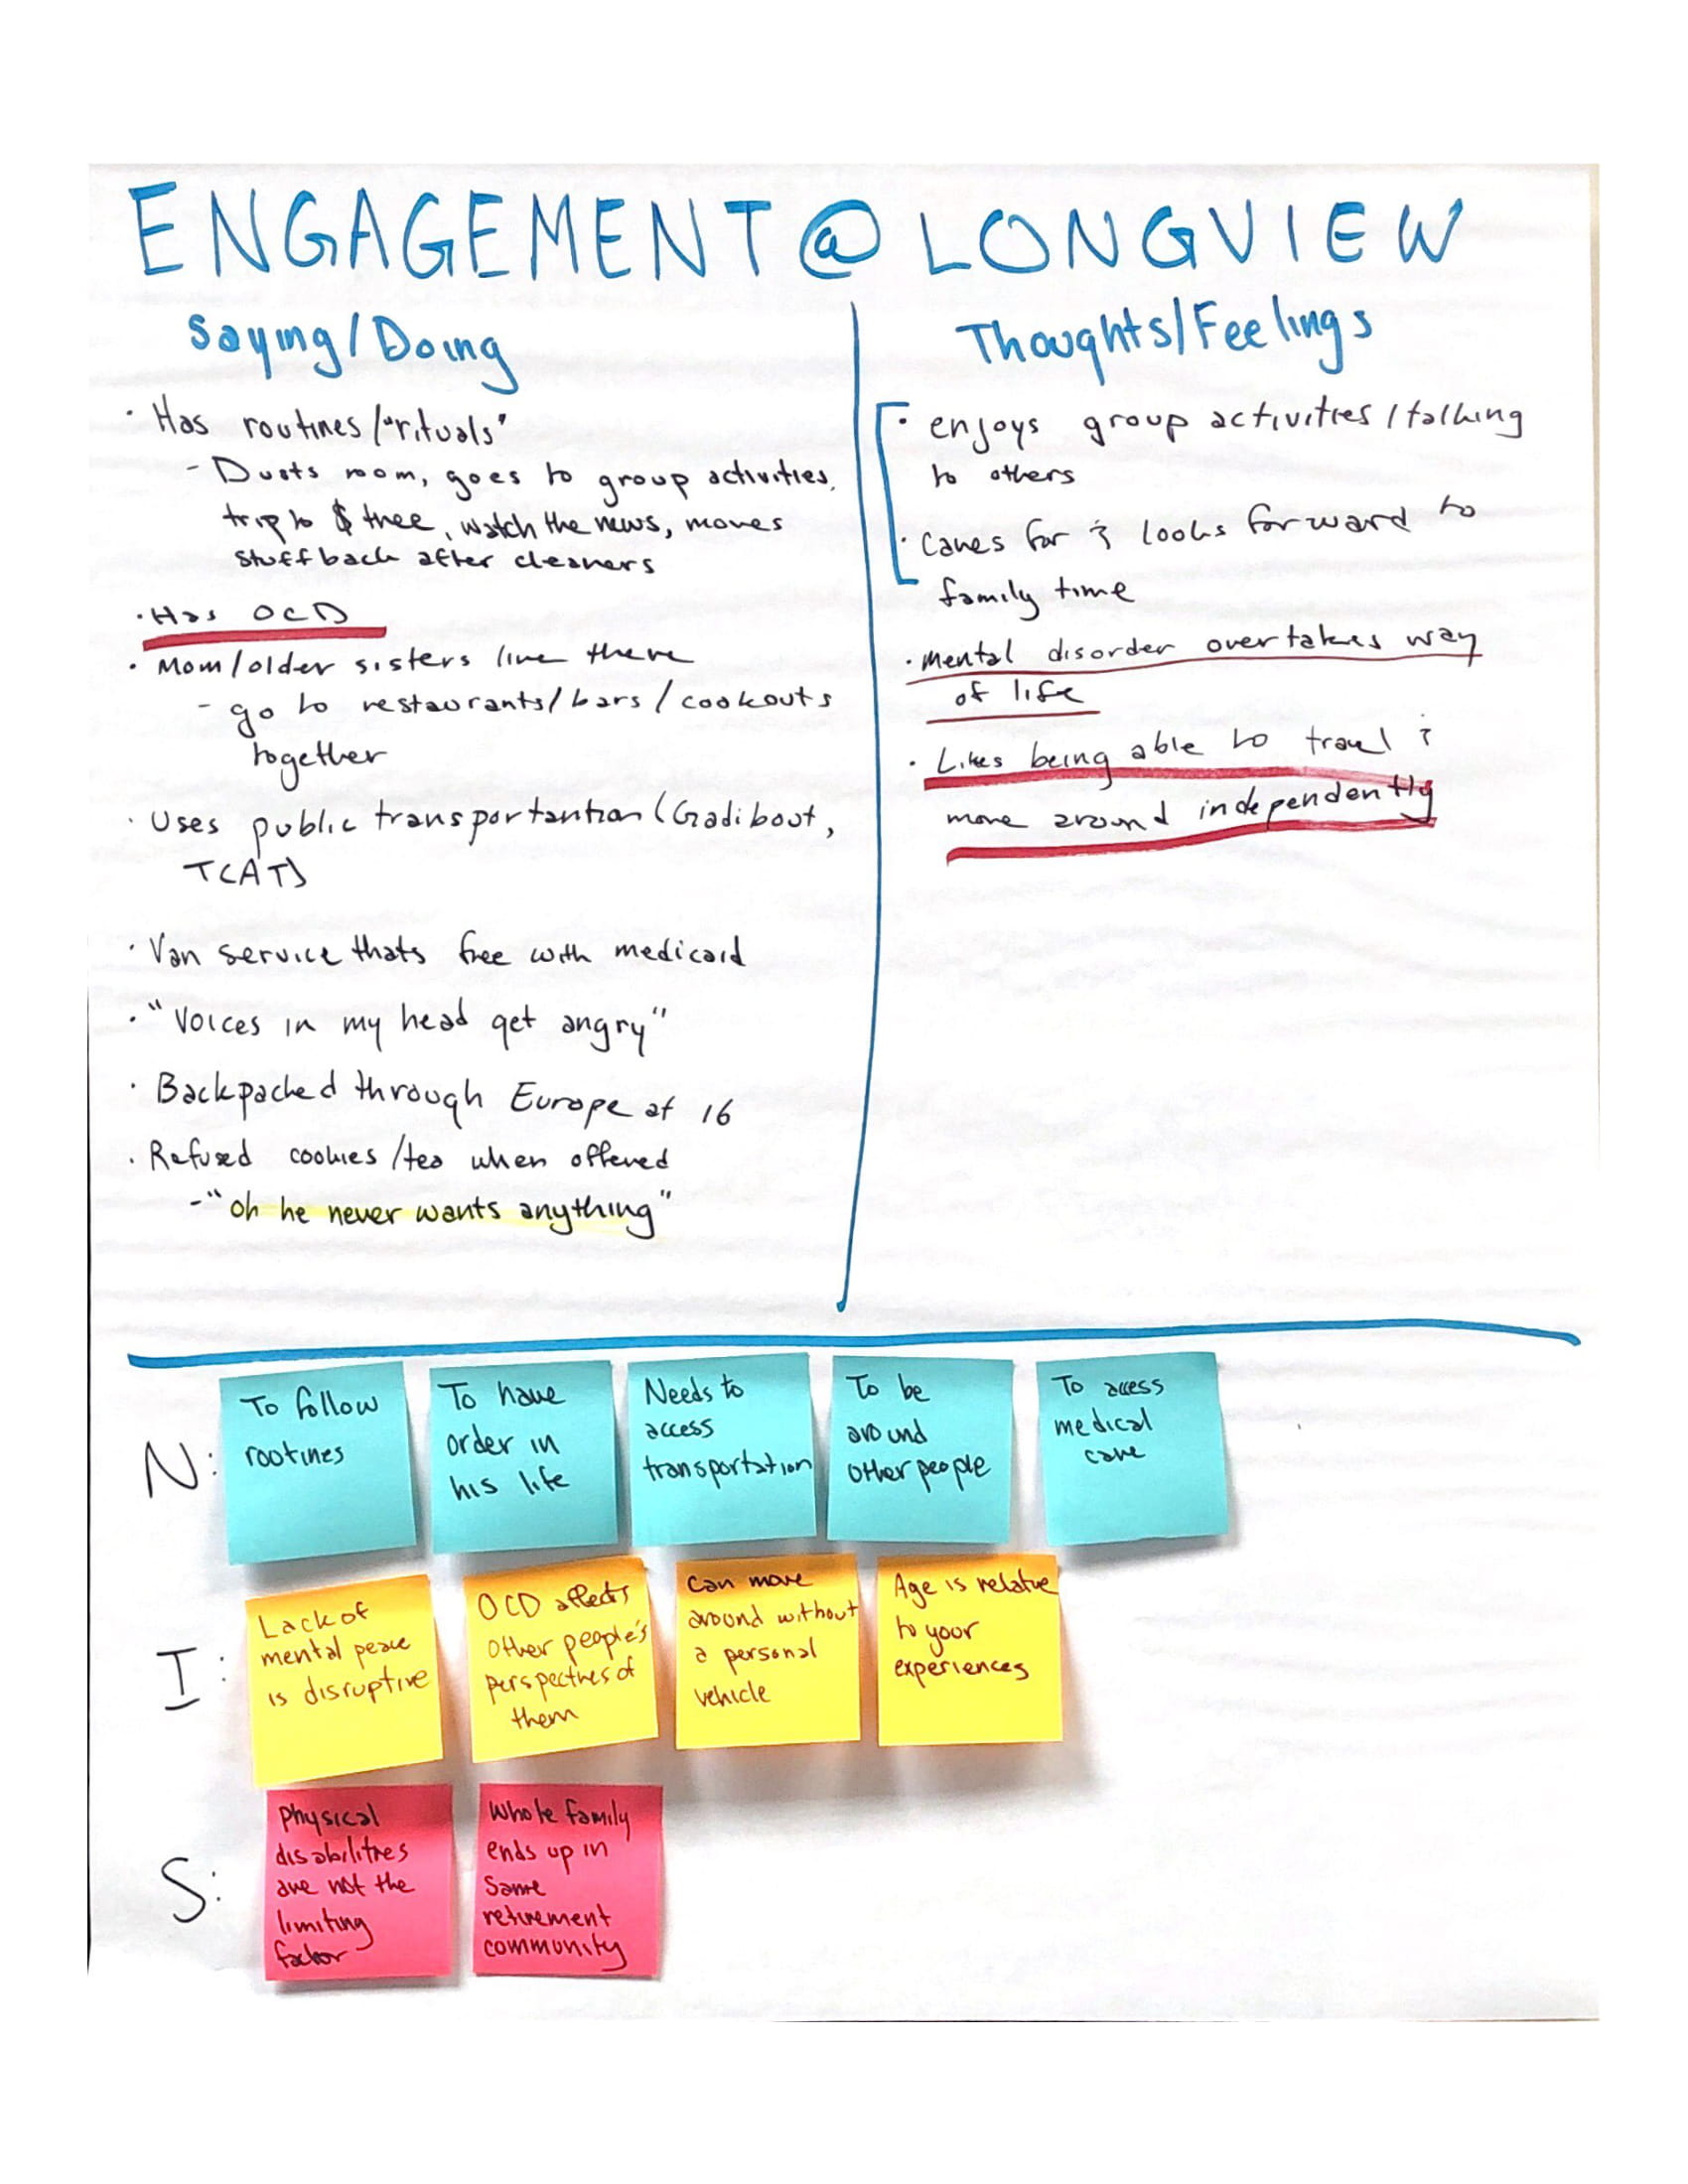 ENGAGEMENT @ LONGVIEW
Saying/Doing
· Has routines/"rituals"
- Dusts room, goes to group activities,
trip to $ tree, watch the news, moves
stuff back after cleaners
· Has OCD
· Mom/older sisters live there
- go to restaurants/bars/cookouts
together
· Uses public transportantion (Gadibout,
TCAT)
· Van service thats free with medicaid
· "Voices in my head get angry"
· Backpacked through Europe at 16
· Refused cookies/tea when offered
- "Oh he never wants anything"
Thoughts/Feelings
· enjoys group activities/talking
to others
· Cares for & looks forward to
family time
· Mental disorder overtakes way
of life
· Likes being able to travel &
move around independently
N:
To follow
routines
To have
order in
his life
Needs to
access
transportation
To be
around
other people
To access
medical
care
I:
Lack of
mental peace
is disruptive
OCD affects
other people's
perspectives of
them
Can move
around without
a personal
vehicle
Age is relative
to your
experiences
S:
Physical
disabilities
are not the
limiting
factor
Whole family
ends up in
same
retirement
community